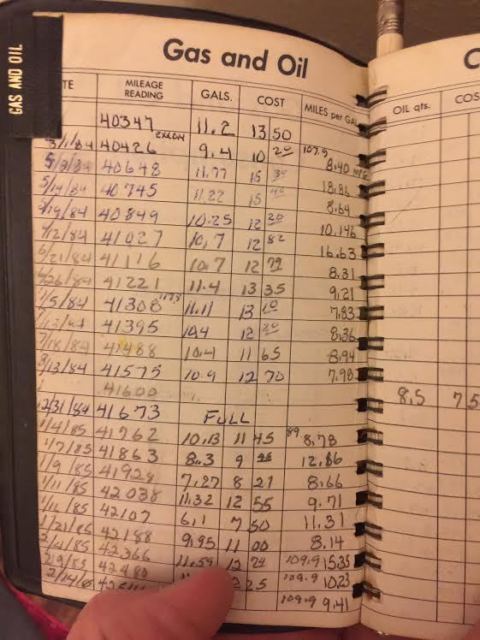 GAS AND OIL
Gas and Oil
TE MILEAGE READING GALS. COST MILES per GAL OIL qts. COS
40347 11.2 13 50
3/1/84 40426 9.4 10 20 107.9 8.40
40648 11.77 15 18.86
5/14/84 40745 11.22 15 8.64
40849 10.25 12 30 10.146
41027 10,7 12 82 16.63
6/21/84 41116 10.7 12 79 8.31
41221 11.4 13 35 9.21
7/5/84 41308 11.11 13 7.83
41395 10.4 12 8.36
7/18/84 41488 10.4 11 65 8.94
8/13/84 41575 10.9 12 70 7.98
41600 8.5 75
12/31/84 41673 FULL
1/4/85 41762 10.13 11 45 89 8.78
1/7/85 41863 8.3 9 12.86
1/9/85 41928 7.27 8 21 8.66
1/11/85 42038 11.32 12 55 9.71
42107 6,1 7 50 11.31
42188 9.95 11 00 8.14
42366 11.59 12 79 109.9 15.35
2/9/85 42480 25 109.9 10.23
109.9 9.41